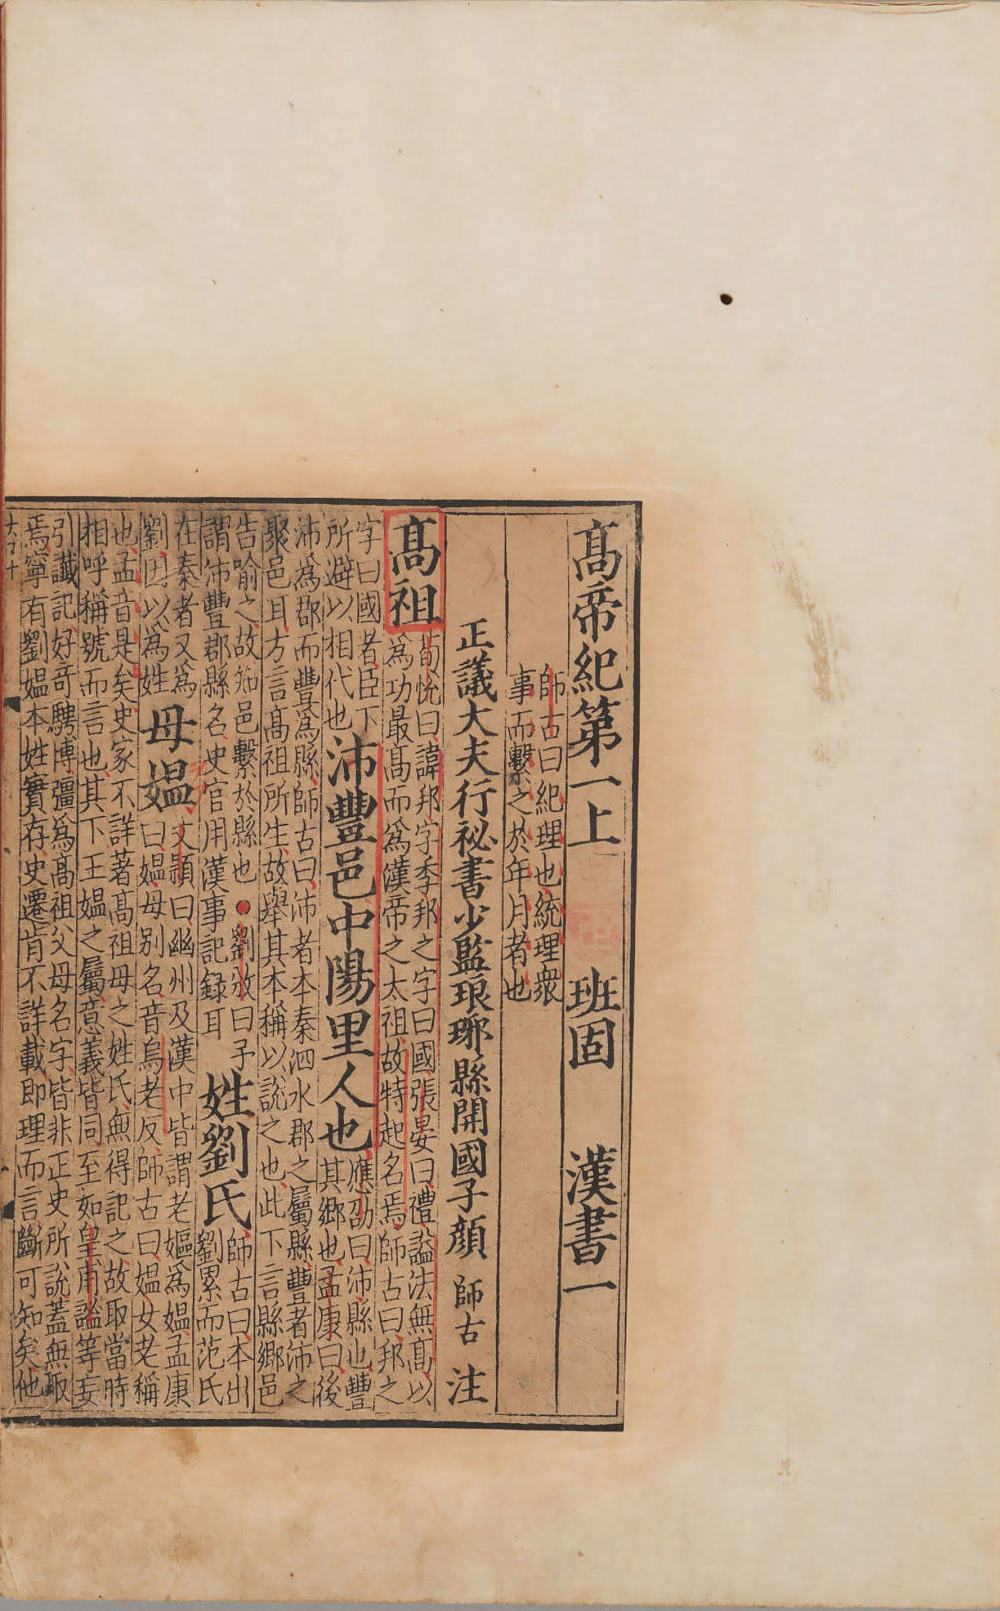 高帝紀第一上 班固 漢書一
師古曰紀理也統理衆
事而繫之於年月者也
正議大夫行祕書少監琅琊縣開國子顏 師古 注
高祖 荀悅曰諱邦字季邦之字曰國張晏曰禮謚法無高以
為功最高而為漢帝之太祖故特起名焉師古曰邦之
字曰國者臣下
所避以相代也 沛豐邑中陽里人也 應劭曰沛縣也豐
其鄉也孟康曰後
沛為郡而豐為縣師古曰沛者本秦泗水郡之屬縣豐者沛之
聚邑耳方言高祖所生故舉其本稱以說之也此下言縣鄉邑
告喻之故知邑繫於縣也●劉攽曰子
謂沛豐郡縣名史官用漢事記録耳 姓劉氏 師古曰本出
劉累而范氏
在秦者又為
劉因以為姓 母媼 文穎曰幽州及漢中皆謂老嫗為媼孟康
曰媼母别名音烏老反師古曰媼女老稱
也孟音是矣史家不詳著高祖母之姓氏無得記之故取當時
相呼稱號而言也其下王媼之屬意義皆同至如皇甫謐等妄
引讖記好奇騁博彊為高祖父母名字皆非正史所說蓋無取
焉寧有劉媼本姓實存史遷肯不詳載即理而言斷可知矣他